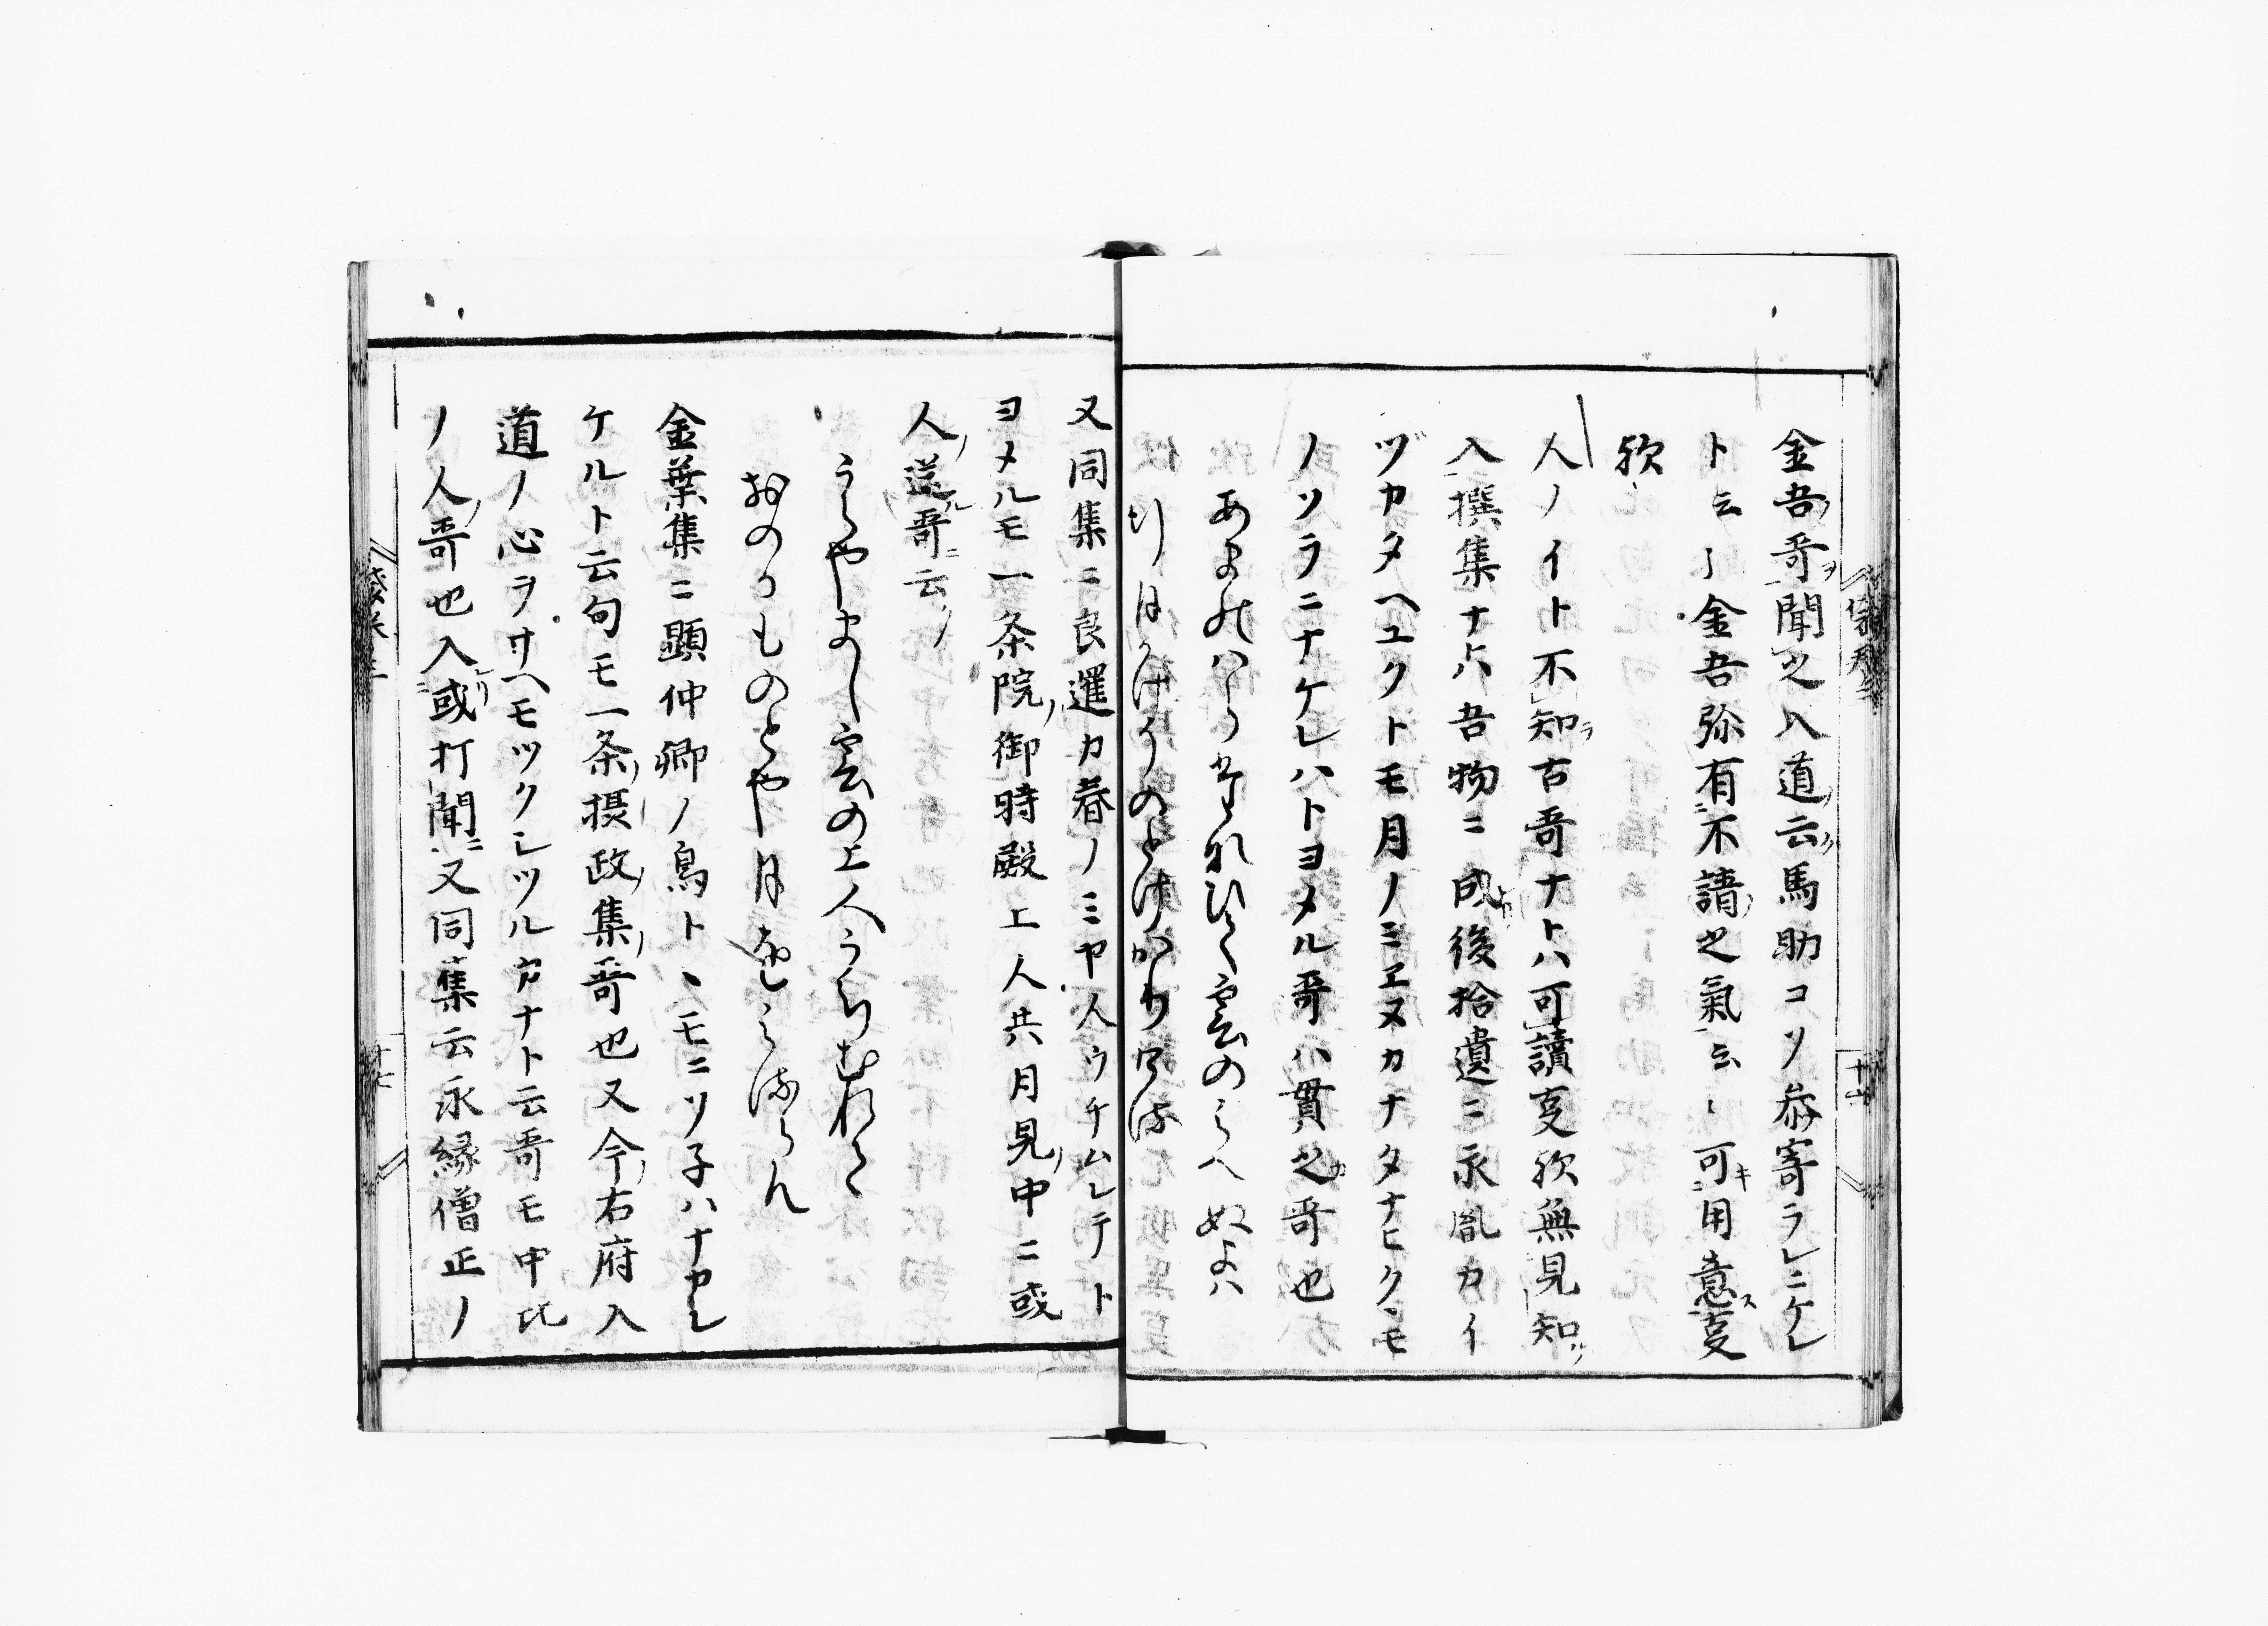 金吾ノ哥ヲ聞之入道云ク馬助コソ叅寄ラレニケレ
ト云〻金吾弥有不請ノ之氣云〻可キ用意ス叓
欤
人ノイト不知ラ古哥ナトハ可讀叓欤無見知ツ
入撰集ナトハ吾物ニ成ヤ後拾遺ニ永胤カイ
ヅカタヘユクトモ月ノミエヌカナタナヒククモ
ノソラニナケレハトヨメル哥ハ貫之カ哥也
あまのはらたなひく雲のみへぬよは
行月かけそのとけかりける
又同集ニ良暹カ春ノミヤ人ウチムレテト
ヨメルモ一条院ノ御時殿上人共月見ノ中ニ或
人ノ送ル哥ニ云ク
うらやまし雲の上人うちむれて
おのかものとや月をみるらん
金葉集ニ顕仲卿ノ鳥トヽモニソ子ハナカレ
ケルト云句モ一条ノ摂政ノ集ノ哥也又今ノ右府入
道ノ心ヲサヘモツクシツルカナト云哥モ中比
ノ人ノ哥也入レリ或打聞ニ又同集云永縁僧正ノ
十六
十七